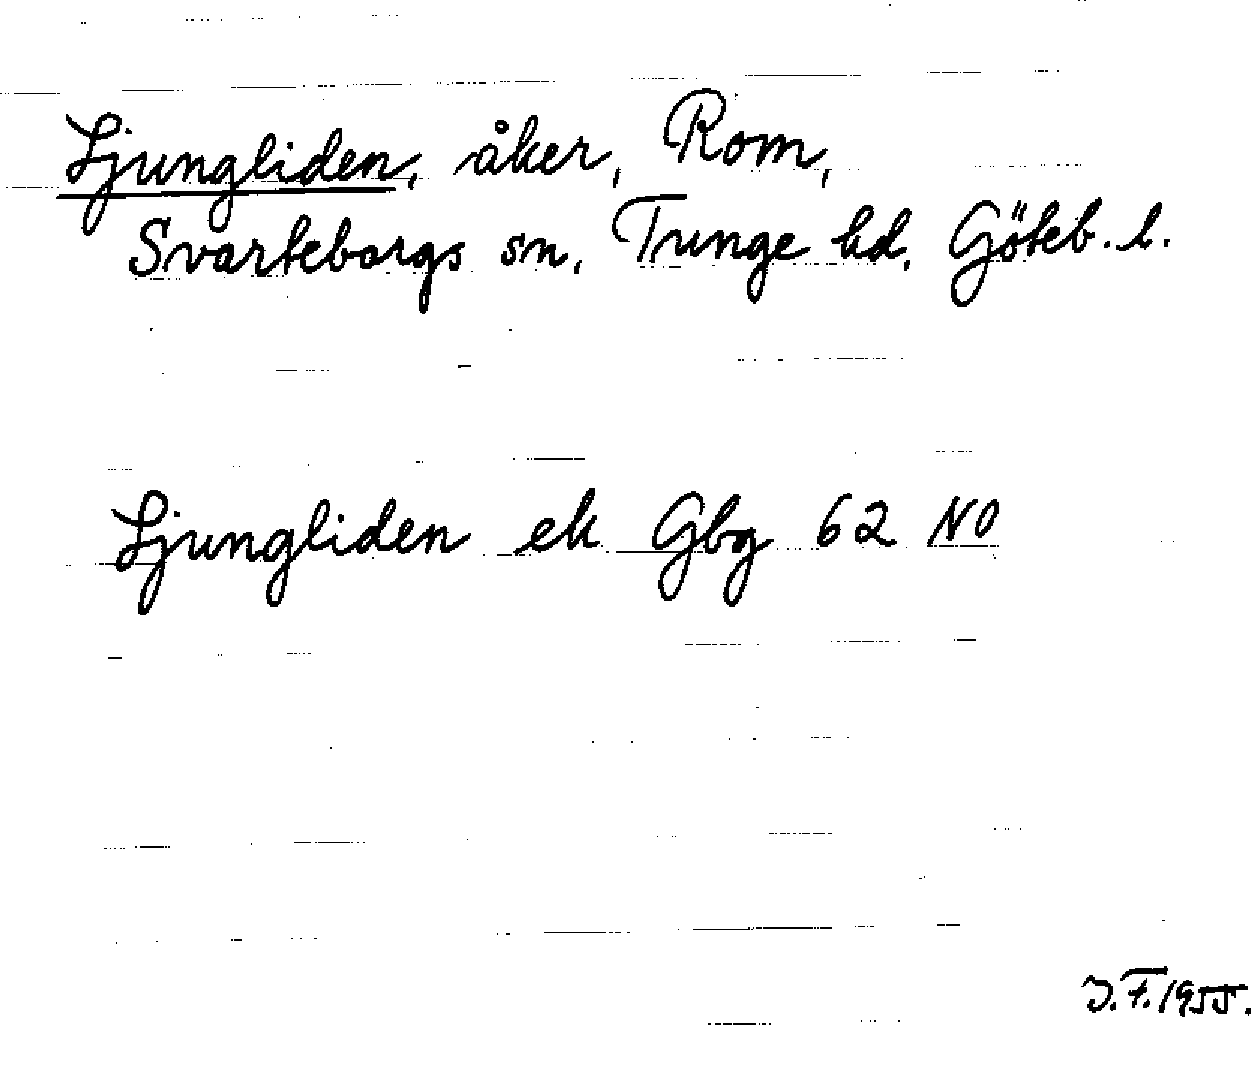 Ljungliden, åker, Rom,
Svarteborgs sn. Tunge hd. Göteb. l.
Ljungliden ek Gbg 62 NO
J.F. 1955.